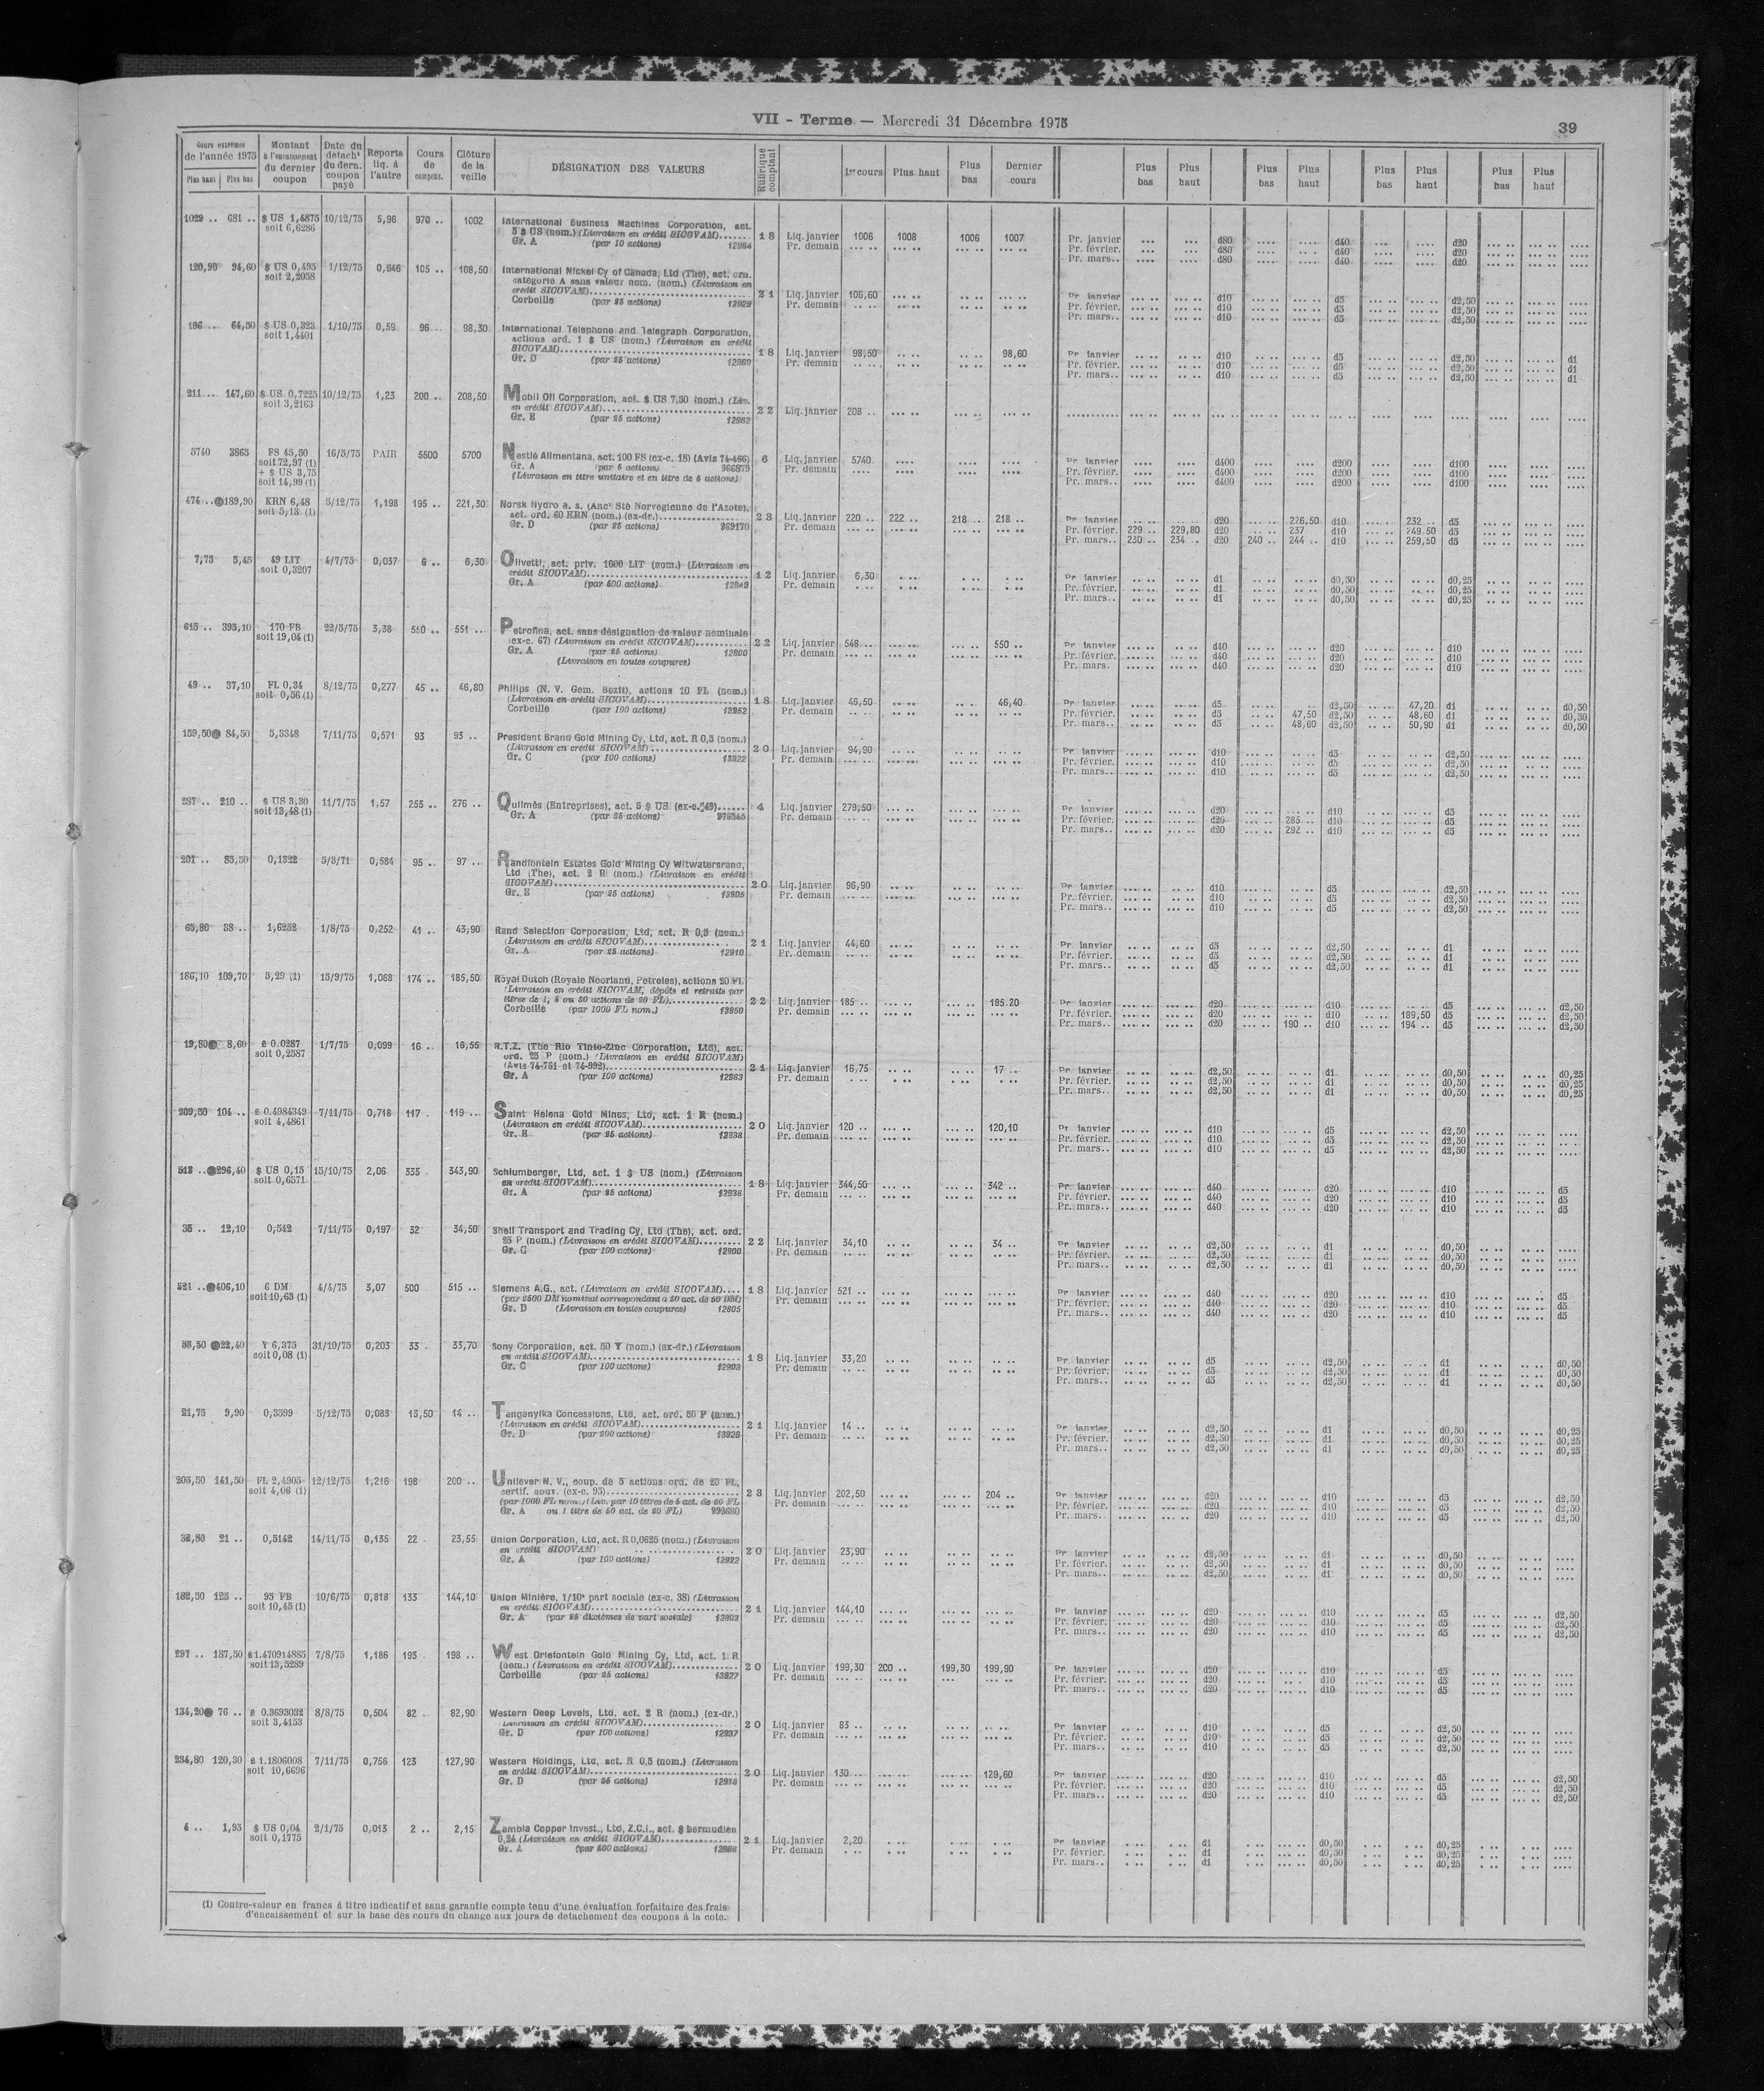 VII - Terme — Mercredi 31 Décembre 1975
39
Cours extrêmes de l'année 1975 Plus haut Plus bas
Montant à l'encaissement du dernier coupon
Date du détach' du dern. coupon payé
Reports liq. à l'autre
Cours de compens.
Clôture de la veille
DÉSIGNATION DES VALEURS
Rubrique comptant
1er cours Plus haut Plus bas Dernier cours
Plus bas Plus haut Plus bas Plus haut Plus bas Plus haut Plus bas Plus haut
1029 .. 681 .. $ US 1,4875 10/12/75 5,96 970 .. 1002
soit 6,6286
International Business Machines Corporation, act.
5 $ US (nom.) (Livraison en crédit SICOVAM).......
Gr. A (par 10 actions) 12964
18 Liq. janvier 1006 1008 1006 1007
Pr. demain
Pr. janvier d80 d40 d20
Pr. février. d80 d40 d20
Pr. mars.. d80 d40 d20
120,90 94,60 $ US 0,495 1/12/75 0,646 105 .. 108,50
soit 2,2058
International Nickel Cy of Canada, Ltd (The), act. orn.
catégorie A sans valeur nom. (nom.) (Livraison en
crédit SICOVAM)
Corbeille (par 25 actions) 12929
21 Liq. janvier 106,60
Pr. demain
Pr. janvier d10 d5 d2,50
Pr. février. d10 d5 d2,50
Pr. mars.. d10 d5 d2,50
64,50 $ US 0,323 1/10/75 0,59 96 98,30
soit 1,4401
International Telephone and Telegraph Corporation,
actions ord. 1 $ US (nom.) (Livraison en crédit
SICOVAM)
Gr. D (par 25 actions) 12960
18 Liq. janvier 98,50 98,60
Pr. demain
Pr. janvier d10 d5 d2,50 d1
Pr. février. d10 d5 d2,50 d1
Pr. mars.. d10 d5 d2,50 d1
211 ... 147,60 $ US 0,7225 10/12/75 1,23 200 .. 208,50
soit 3,2163
Mobil Oil Corporation, act. $ US 7,50 (nom.) (Liv.
en crédit SICOVAM)
Gr. E (par 25 actions) 12962
22 Liq. janvier 208 ..
5740 3865 FS 45,50 16/5/75 PAIR 5500 5700
soit 72,97 (1)
+ $ US 3,75
soit 14,99 (1)
Nestlé Alimentana, act. 100 FS (ex-c. 18) (Avis 74-466)
Gr. A (par 5 actions) 966879
(Livraison en titre unitaire et en titres de 5 actions)
6 Liq. janvier 5740
Pr. demain
Pr. janvier d400 d200 d100
Pr. février. d400 d200 d100
Pr. mars.. d400 d200 d100
474 .. 189,90 KRN 6,48 5/12/75 1,198 195 .. 221,30
soit 5,13 (1)
Norsk Hydro a. s. (Anc' Sté Norvégienne de l'Azote),
act. ord. 60 KRN (nom.) (ex-dr.)
Gr. D (par 25 actions) 969170
23 Liq. janvier 220 .. 222 .. 218 .. 218 ..
Pr. demain
Pr. janvier d20 226,50 d10 232 .. d5
Pr. février. 229 .. 229,80 d20 237 d10 249,50 d5
Pr. mars.. 230 .. 234 .. d20 240 .. 244 .. d10 259,50 d5
7,75 5,45 49 LIT 4/7/75 0,037 6 .. 6,30
soit 0,3207
Olivetti, act. priv. 1000 LIT (nom.) (Livraison en
crédit SICOVAM)
Gr. A (par 500 actions) 12949
12 Liq. janvier 6,30
Pr. demain
Pr. janvier d1 d0,50 d0,25
Pr. février. d1 d0,50 d0,25
Pr. mars.. d1 d0,50 d0,25
615 .. 393,10 170 FB 22/5/75 3,38 550 .. 551 ..
soit 19,04 (1)
Petrofina, act. sans désignation de valeur nominale
(ex-c. 67) (Livraison en crédit SICOVAM)
Gr. A (par 25 actions) 12800
(Livraison en toutes coupures)
22 Liq. janvier 548 .. 550 ..
Pr. demain
Pr. janvier d40 d20 d10
Pr. février. d40 d20 d10
Pr. mars. d40 d20 d10
49 .. 37,10 FL 0,34 8/12/75 0,277 45 .. 46,80
soit 0,56 (1)
Philips (N. V. Gem. Bezit), actions 10 FL (nom.)
(Livraison en crédit SICOVAM)
Corbeille (par 100 actions) 13952
18 Liq. janvier 46,50 46,40
Pr. demain
Pr. janvier d5 d2,50 47,20 d1 d0,50
Pr. février. d5 47,50 d2,50 48,60 d1 d0,50
Pr. mars.. d5 48,60 d2,50 50,90 d1 d0,50
159,50 84,50 5,3348 7/11/75 0,571 93 93 ..
President Brand Gold Mining Cy, Ltd, act. R 0,5 (nom.)
(Livraison en crédit SICOVAM)
Gr. C (par 100 actions) 13922
20 Liq. janvier 94,90
Pr. demain
Pr. janvier d10 d5 d2,50
Pr. février. d10 d5 d2,50
Pr. mars.. d10 d5 d2,50
287 .. 210 .. $ US 3,30 11/7/75 1,57 255 .. 276 ..
soit 13,48 (1)
Quilmès (Entreprises), act. 5 $ US (ex-c. 49)......
Gr. A (par 25 actions)
4 Liq. janvier 279,50
Pr. demain
Pr. janvier d20 d10 d5
Pr. février. d20 285 .. d10 d5
Pr. mars.. d20 292 .. d10 d5
201 .. 83,50 0,1322 5/8/71 0,584 95 .. 97 ...
Randfontein Estates Gold Mining Cy Witwatersrand,
Ltd (The), act. 2 R (nom.) (Livraison en crédit
SICOVAM)
Gr. E (par 25 actions) 12905
20 Liq. janvier 96,90
Pr. demain
Pr. janvier d10 d5 d2,50
Pr. février. d10 d5 d2,50
Pr. mars.. d10 d5 d2,50
65,80 38 .. 1,6252 1/8/75 0,252 41 .. 43,90
Rand Selection Corporation, Ltd, act. R 0,5 (nom.)
(Livraison en crédit SICOVAM)
Gr. A (par 25 actions) 12910
21 Liq. janvier 44,60
Pr. demain
Pr. janvier d5 d2,50 d1
Pr. février. d5 d2,50 d1
Pr. mars.. d5 d2,50 d1
186,10 109,70 5,29 (1) 15/9/75 1,068 174 .. 185,50
Royal Dutch (Royale Néerland, Pétroles), actions 20 FL
(Livraison en crédit SICOVAM, dépôts et retraits par
titres de 1, 5 ou 50 actions de 20 FL)
Corbeille (par 1000 FL nom.) 13950
22 Liq. janvier 185 .. 185.20
Pr. demain
Pr. janvier d20 d10 d5 d2,50
Pr. février. d20 d10 189,50 d5 d2,50
Pr. mars.. d20 190 .. d10 194 .. d5 d2,50
19,80 8,60 £ 0.0287 1/7/75 0,099 16 .. 16,55
soit 0,2587
R.T.Z. (The Rio Tinto-Zinc Corporation, Ltd), act.
ord. 25 P (nom.) (Livraison en crédit SICOVAM)
(Avis 74-791 et 74-992)
Gr. A (par 100 actions) 12963
21 Liq. janvier 16,75 17 ..
Pr. demain
Pr. janvier d2,50 d1 d0,50 d0,25
Pr. février. d2,50 d1 d0,50 d0,25
Pr. mars.. d2,50 d1 d0,50 d0,25
209,50 104 .. £ 0.4984349 7/11/75 0,718 117 . 119 ...
soit 4,4861
Saint Helena Gold Mines, Ltd, act. 1 R (nom.)
(Livraison en crédit SICOVAM)
Gr. E (par 25 actions) 12938
20 Liq. janvier 120 .. 120,10
Pr. demain
Pr. janvier d10 d5 d2,50
Pr. février. d10 d5 d2,50
Pr. mars.. d10 d5 d2,50
513 .. 296,40 $ US 0,15 15/10/75 2,06 335 . 343,90
soit 0,6571
Schlumberger, Ltd, act. 1 $ US (nom.) (Livraison
en crédit SICOVAM)
Gr. A (par 25 actions) 12936
18 Liq. janvier 344,50 342 ..
Pr. demain
Pr. janvier d40 d20 d10 d5
Pr. février. d40 d20 d10 d5
Pr. mars.. d40 d20 d10 d5
35 .. 12,10 0,542 7/11/75 0,197 32 34,50
Shell Transport and Trading Cy, Ltd (The), act. ord.
25 P (nom.) (Livraison en crédit SICOVAM)
Gr. C (par 100 actions) 12900
22 Liq. janvier 34,10 34 ..
Pr. demain
Pr. janvier d2,50 d1 d0,50
Pr. février. d2,50 d1 d0,50
Pr. mars.. d2,50 d1 d0,50
521 .. 406,10 6 DM 4/4/75 3,07 500 515 ..
soit 10,63 (1)
Siemens A.G., act. (Livraison en crédit SICOVAM)....
(par 2500 DM nominal correspondant à 50 act. de 50 DM)
Gr. D (Livraison en toutes coupures) 12805
18 Liq. janvier 521 ..
Pr. demain
Pr. janvier d40 d20 d10 d5
Pr. février. d40 d20 d10 d5
Pr. mars.. d40 d20 d10 d5
53,50 22,40 Y 6,375 31/10/75 0,203 33 . 33,70
soit 0,08 (1)
Sony Corporation, act. 50 Y (nom.) (ex-dr.) (Livraison
en crédit SICOVAM)
Gr. C (par 100 actions) 12903
18 Liq. janvier 33,20
Pr. demain
Pr. janvier d5 d2,50 d1 d0,50
Pr. février. d5 d2,50 d1 d0,50
Pr. mars.. d5 d2,50 d1 d0,50
21,75 9,90 0,3599 5/12/75 0,083 13,50 14 ..
Tanganyika Concessions, Ltd, act. ord. 50 P (nom.)
(Livraison en crédit SICOVAM)
Gr. D (par 200 actions) 13926
21 Liq. janvier 14 ..
Pr. demain
Pr. janvier d2,50 d1 d0,50 d0,25
Pr. février. d2,50 d1 d0,50 d0,25
Pr. mars.. d2,50 d1 d0,50 d0,25
205,50 141,50 FL 2,4905 12/12/75 1,216 198 200 ..
soit 4,06 (1)
Unilever N. V., coup. de 5 actions ord. de 20 FL,
certif. nouv. (ex-c. 95)
(par 1000 FL nom.) (Liv. par 10 titres de 5 act. de 20 FL
Gr. A ou 1 titre de 50 act. de 20 FL)
23 Liq. janvier 202,50 204 ..
Pr. demain
Pr. janvier d20 d10 d5 d2,50
Pr. février. d20 d10 d5 d2,50
Pr. mars d20 d10 d5 d2,50
32,80 21 .. 0,5142 14/11/75 0,135 22 . 23,55
Union Corporation, Ltd, act. R 0,0625 (nom.) (Livraison
en crédit SICOVAM)
Gr. A (par 100 actions) 12922
20 Liq. janvier 23,90
Pr. demain
Pr. janvier d2,50 d1 d0,50
Pr. février. d2,50 d1 d0,50
Pr. mars.. d2,50 d1 d0,50
182,50 125 .. 95 FB 10/6/75 0,818 133 144,10
soit 10,45 (1)
Union Minière, 1/10e part sociale (ex-c. 38) (Livraison
en crédit SICOVAM)
Gr. A (par 25 dixièmes de part sociale) 12803
21 Liq. janvier 144,10
Pr. demain
Pr. janvier d20 d10 d5 d2,50
Pr. février. d20 d10 d5 d2,50
Pr. mars.. d20 d10 d5 d2,50
297 .. 187,50 £ 1.470914885 7/8/75 1,186 193 198 ..
soit 13,5289
West Driefontein Gold Mining Cy, Ltd, act. 1 R
(nom.) (Livraison en crédit SICOVAM)
Corbeille (par 25 actions) 13927
20 Liq. janvier 199,30 200 .. 199,30 199,90
Pr. demain
Pr. janvier d20 d10 d5
Pr. février. d20 d10 d5
Pr. mars.. d20 d10 d5
134,20 76 .. £ 0.3693032 8/8/75 0,504 82 . 82,90
soit 3,4153
Western Deep Levels, Ltd, act. 2 R (nom.) (ex-dr.)
(Livraison en crédit SICOVAM)
Gr. D (par 100 actions) 12937
20 Liq. janvier 83 ..
Pr. demain
Pr. janvier d10 d5 d2,50
Pr. février. d10 d5 d2,50
Pr. mars.. d10 d5 d2,50
234,80 120,30 £ 1.1806008 7/11/75 0,756 123 127,90
soit 10,6696
Western Holdings, Ltd, act. R 0,5 (nom.) (Livraison
en crédit SICOVAM)
Gr. D (par 25 actions) 12918
20 Liq. janvier 130 129,60
Pr. demain
Pr. janvier d20 d10 d5 d2,50
Pr. février. d20 d10 d5 d2,50
Pr. mars.. d20 d10 d5 d2,50
4 .. 1,95 $ US 0,04 2/1/75 0,013 2 .. 2,15
soit 0,1775
Zambia Copper Invest., Ltd, Z.C.I., act. $ bermudien
0,24 (Livraison en crédit SICOVAM)
Gr. A (par 500 actions)
21 Liq. janvier 2,20
Pr. demain
Pr. janvier d1 d0,50 d0,25
Pr. février. d1 d0,50 d0,25
Pr. mars.. d1 d0,50 d0,25
(1) Contre-valeur en francs à titre indicatif et sans garantie compte tenu d'une évaluation forfaitaire des frais
d'encaissement et sur la base des cours du change aux jours de détachement des coupons à la cote.